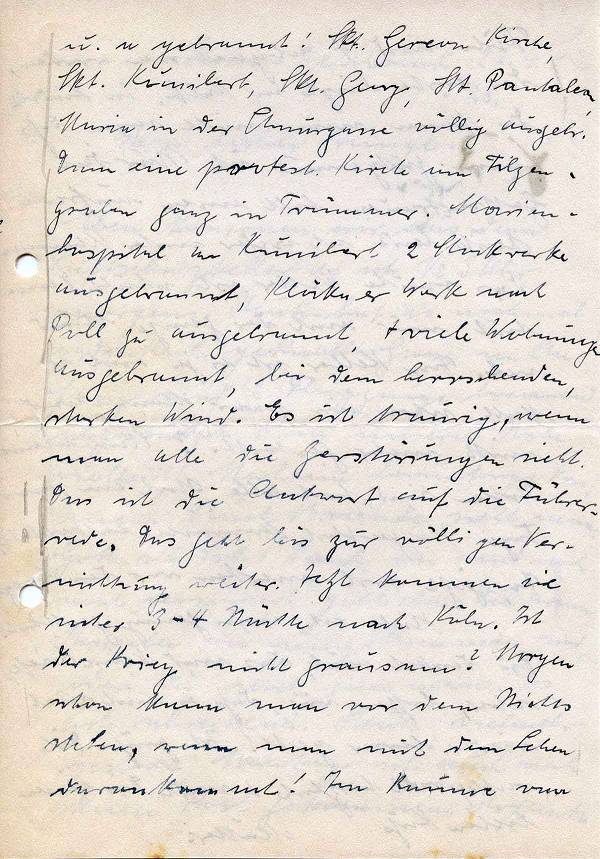 u. u gebrannt! Skt. Gereon Kirche,
Skt. Kunibert, Skt. Georg, Skt. Pantaleon,
Maria in der Schnurgasse völlig ausgebr.
Dann eine protest. Kirche um Filzen-
graben ganz in Trümmer. Marien-
hospital an Kunibert 2 Stockwerke
ausgebrannt, Klöckner Werk nach
Poll zu ausgebrannt, + viele Wohnungen
ausgebrannt, bei dem herrschenden,
starken Wind. Es ist traurig, wenn
man alle die Zerstörungen sieht.
Das ist die Antwort auf die Führer-
rede. Das geht bis zur völligen Ver-
nichtung weiter. Jetzt kommen sie
3-4 Nächte nach Köln. Ist
der Krieg nicht grausam? Morgen
schon kann man vor dem Nichts
stehen, wenn man mit dem Leben
davonkommt! Im Raume von